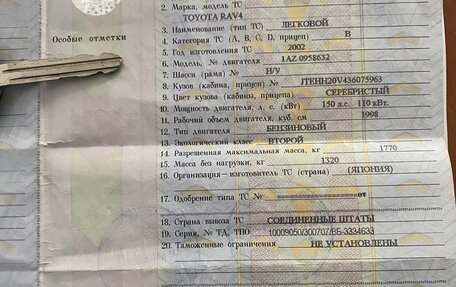 2. Марка, модель ТС
TOYOTA RAV4
3. Наименование (тип ТС) ЛЕГКОВОЙ
4. Категория ТС (А, В, С, D, прицеп) B
5. Год изготовления ТС 2002
6. Модель, № двигателя 1AZ 0958632
7. Шасси (рама) № Н/У
8. Кузов (кабина, прицеп) № JTEHH20V436075963
9. Цвет кузова (кабины, прицепа) СЕРЕБРИСТЫЙ
10. Мощность двигателя, л. с. (кВт) 150 л.с. 110 кВт.
11. Рабочий объем двигателя, куб. см 1998
12. Тип двигателя БЕНЗИНОВЫЙ
13. Экологический класс ВТОРОЙ
14. Разрешенная максимальная масса, кг 1770
15. Масса без нагрузки, кг 1320
16. Организация—изготовитель ТС (страна) (ЯПОНИЯ)
17. Одобрение типа ТС № от
18. Страна вывоза ТС СОЕДИНЕННЫЕ ШТАТЫ
19. Серия, № ТД, ТПО 10009050/300707/ВБ-3334633
20. Таможенные ограничения НЕ УСТАНОВЛЕНЫ
Особые отметки